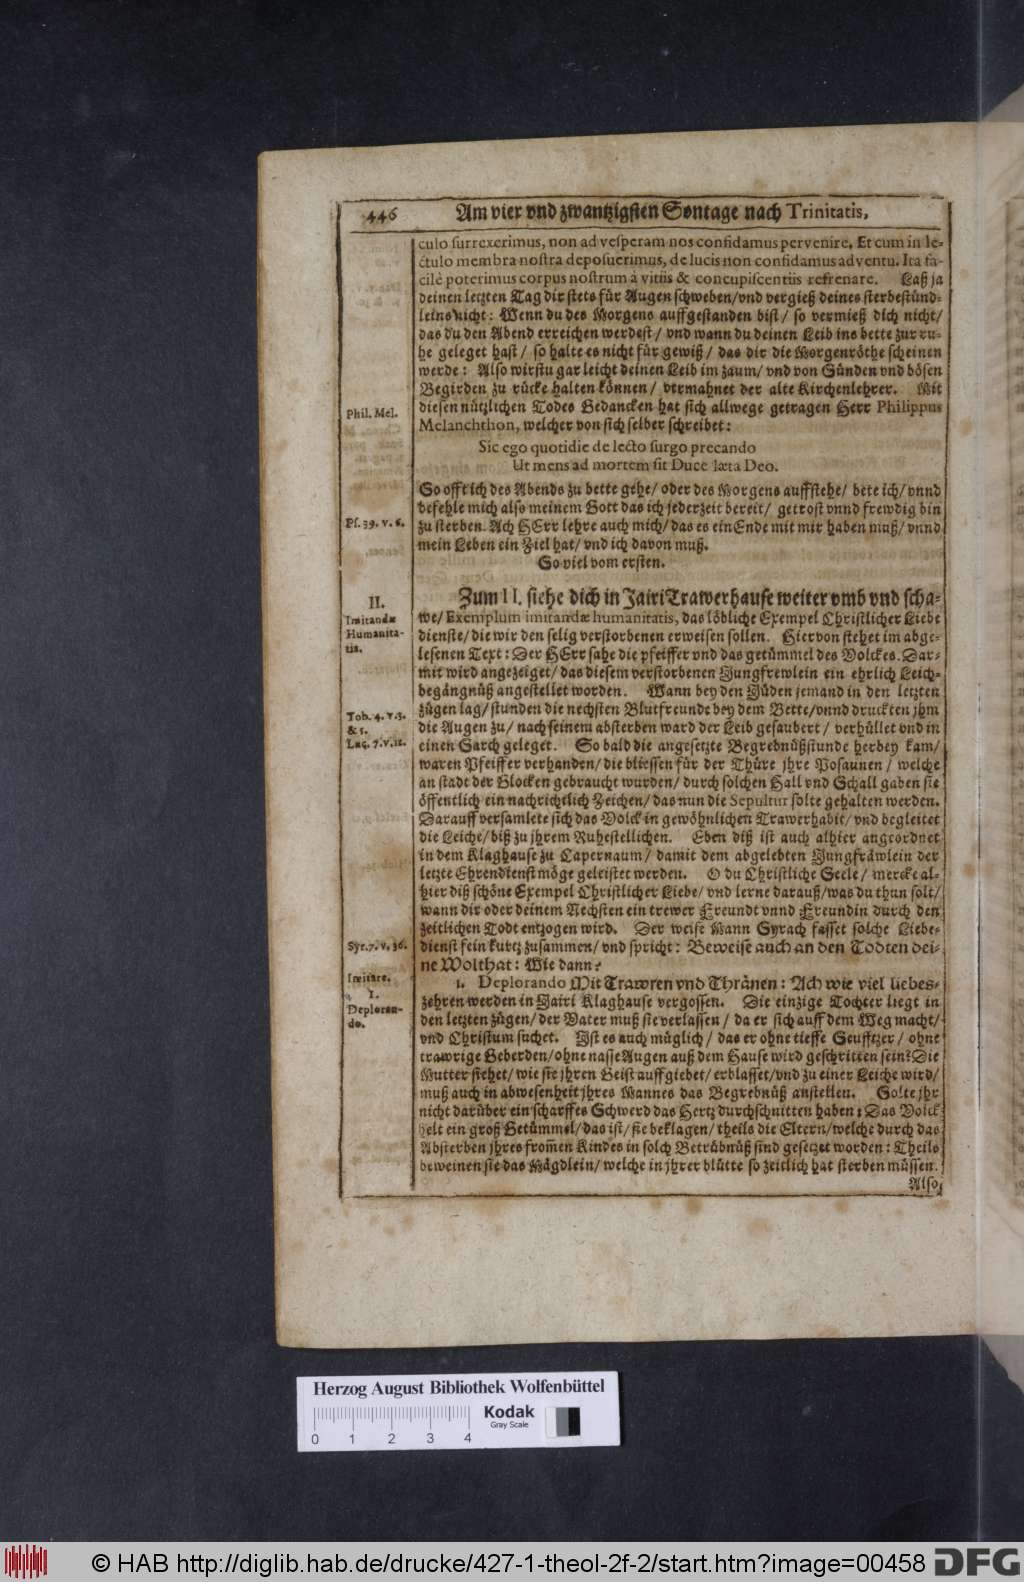 446 Am vier vnd zwantzigsten Sontage nach Trinitatis,
culo surrexerimus, non ad vesperam nos confidamus pervenire. Et cum in le-
ctulo membra nostra deposuerimus, de lucis non confidamus adventu. Ita fa-
cilè poterimus corpus nostrum à vitiis & concupiscentiis refrenare. Laß ja
deinen letzten Tag dir stets für Augen schweben/vnd vergieß deines sterbestünd-
leins nicht: Wenn du des Morgens auffgestanden bist/ so vermieß dich nicht/
das du den Abend erreichen werdest/ vnd wann du deinen Leib ins bette zur ru-
he geleget hast/ so halte es nicht für gewiß/ das dir die Morgenröthe scheinen
werde: Also wirstu gar leicht deinen Leib im zaum/ vnd von Sünden vnd bösen
Begirden zu rücke halten können/ vermahnet der alte Kirchenlehrer. Mit
diesen nützlichen Todes Gedancken hat sich allwege getragen Herr Philippus
Phil. Mel.
Melanchthon, welcher von sich selber schreibet:
Sic ego quotidie de lecto surgo precando
Ut mens ad mortem sit Duce læta Deo.
So offt ich des Abends zu bette gehe/ oder des Morgens auffstehe/ bete ich/ vnnd
befehle mich also meinem Gott das ich jederzeit bereit/ getrost vnnd frewdig bin
Ps. 39. v. 6.
zu sterben. Ach HErr lehre auch mich/ das es ein Ende mit mir haben muß/ vnnd
mein Leben ein Ziel hat/ vnd ich davon muß.
So viel vom ersten.
II.
Imitandæ
Humanita-
tis.
Zum II. siehe dich in Jairi Trawerhause weiter vmb vnd scha-
we/ Exemplum imitandæ humanitatis, das löbliche Exempel Christlicher Liebe
dienste/ die wir den selig verstorbenen erweisen sollen. Hiervon stehet im abge-
lesenen Text: Der HErr sahe die pfeiffer vnd das getümmel des Volckes. Dar-
mit wird angezeiget/ das diesem verstorbenen Jungfrewlein ein ehrlich Leich-
begängnüß angestellet worden. Wann bey den Jüden jemand in den letzten
zügen lag/ stunden die nechsten Blutfreunde bey dem Bette/ vnnd druckten jhm
Tob. 4. v. 3.
& 5.
Luc. 7. v. 12.
die Augen zu/ nach seinem absterben ward der Leib gesaubert/ verhüllet vnd in
einen Sarch geleget. So bald die angesetzte Begrebnüßstunde herbey kam/
waren Pfeiffer verhanden/ die bliessen für der Thüre jhre Posaunen/ welche
an stadt der Glocken gebraucht wurden/ durch solchen Hall vnd Schall gaben sie
öffentlich ein nachrichtlich Zeichen/ das nun die Sepultur solte gehalten werden.
Darauff versamlete sich das Volck in gewöhnlichen Trawerhabit/ vnd begleitet
die Leiche/ biß zu jhrem Ruhestellichen. Eben diß ist auch alhier angeordnet
in dem Klaghause zu Capernaum/ damit dem abgelebten Jungfräwlein der
letzte Ehrendienst möge geleistet werden. O du Christliche Seele/ mercke al-
hier diß schöne Exempel Christlicher Liebe/ vnd lerne darauß/ was du thun solt/
wann dir oder deinem Nechsten ein trewer Freundt vnnd Freundin durch den
zeitlichen Todt entzogen wird. Der weise Mann Syrach fasset solche Liebe-
Syr. 7. v. 36.
dienst fein kurtz zusammen/ vnd spricht: Beweise auch an den Todten dei-
ne Wolthat: Wie dann?
Imitare.
1.
Deploran-
do.
1. Deplorando Mit Trawren vnd Thränen: Ach wie viel liebes-
zehren werden in Jairi Klaghause vergossen. Die einzige Tochter liegt in
den letzten zügen/ der Vater muß sie verlassen/ da er sich auff dem Weg macht/
vnd Christum suchet. Ist es auch müglich/ das er ohne tieffe Seufftzer/ ohne
trawrige Geberden/ ohne nasse Augen auß dem Hause wird geschritten sein? Die
Mutter siehet/ wie sie jhren Geist auffgiebet/ erblasset/ vnd zu einer Leiche wird/
muß auch in abwesenheit jhres Mannes das Begrebnüß anstellen. Solte jhr
nicht darüber ein scharffes Schwerd das Hertz durchschnitten haben: Das Volck
helt ein groß Getümmel/ das ist/ sie beklagen/ theils die Eltern/ welche durch das
Absterben jhres from̃en Kindes in solch Betrübnüß sind gesetzet worden: Theils
beweinen sie das Mägdlein/ welche in jhrer blütte so zeitlich hat sterben müssen.
Also
Herzog August Bibliothek Wolfenbüttel
Kodak
Gray Scale
0 1 2 3 4
© HAB http://diglib.hab.de/drucke/427-1-theol-2f-2/start.htm?image=00458 DFG